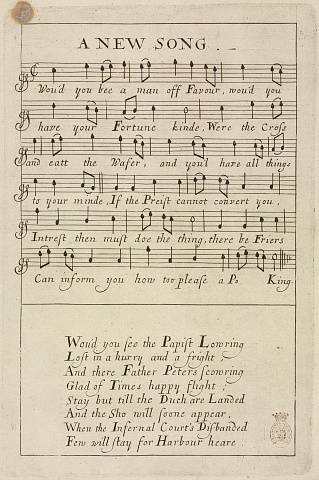 A NEW SONG.
Wou'd you bee a man off Favour, wou'd you
have your Fortune kinde, Were the Cross
and eatt the Wafer, and you'l have all things
to your minde, If the Preist cannot convert you,
Intrest then must doe the thing, there be Friers
Can inform you how too please a Po King.
Woud you see the Papist Lowring
Lost in a hurry and a fright;
And there Father Peters scowring
Glad of Times happy flight;
Stay but till the Duch are Landed
And the Sho will soone appear,
When the Infernal Court's Disbanded
Few will stay for Harbour heare